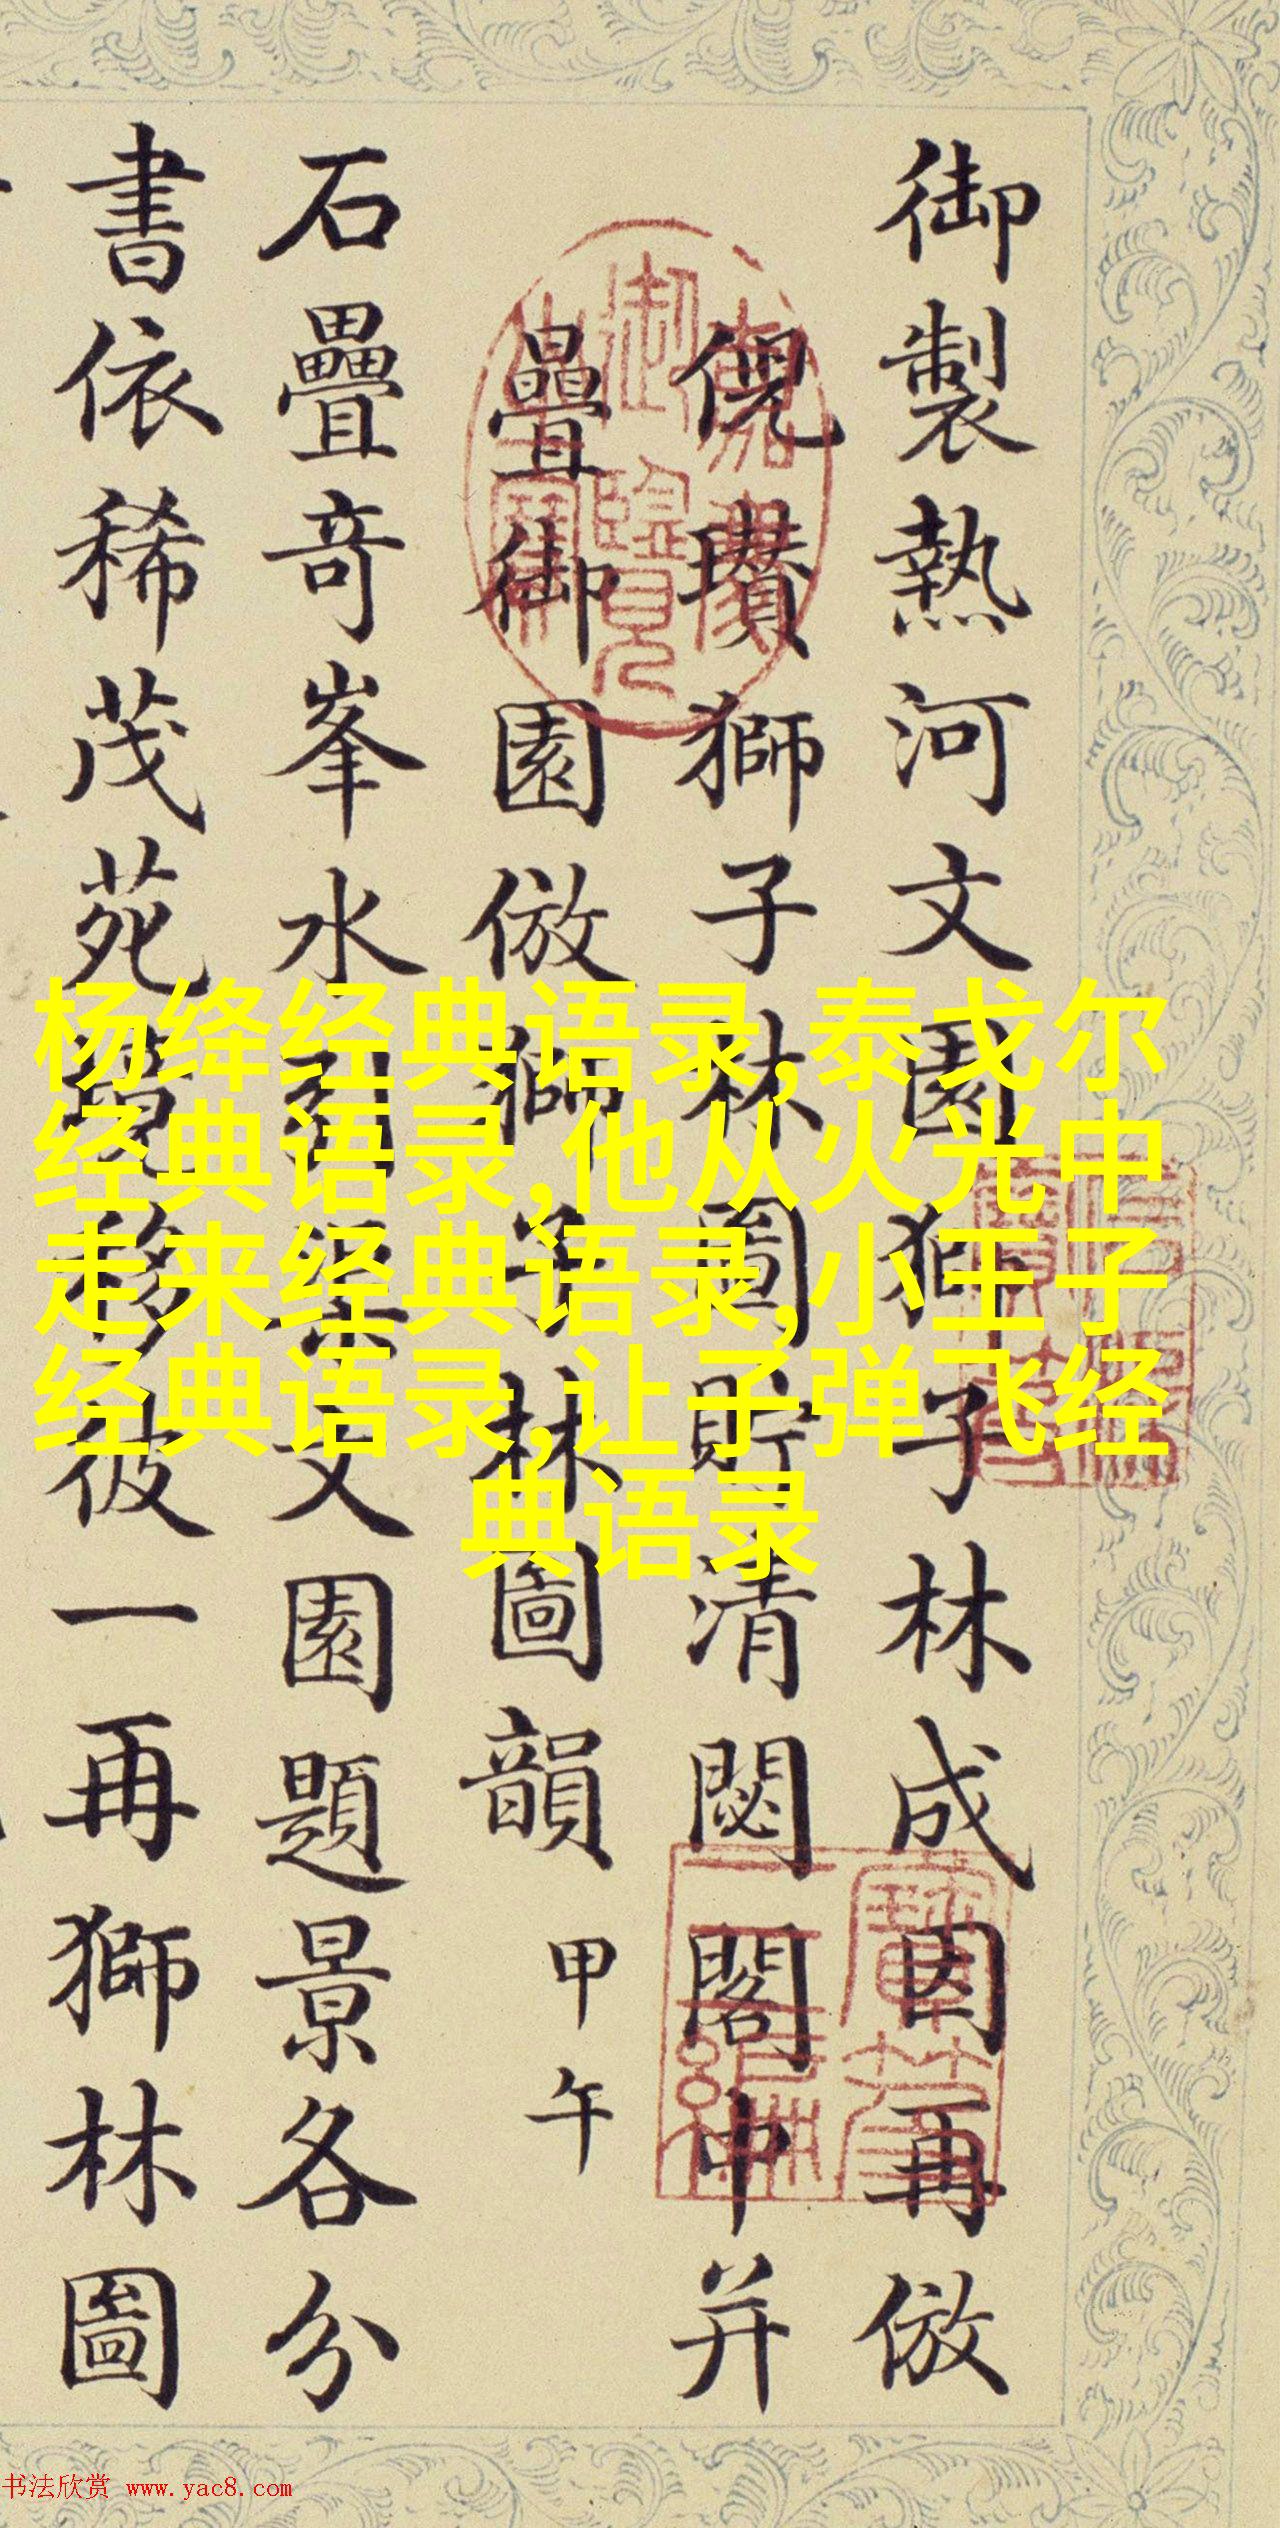 御製熱河文園獅子林成因再倣
倪瓚獅子林圖貯清閟閣中并
疊御園倣獅子林圖韻甲午
石疊奇峯水文園題景各分
書依稀茂苑移彼一再獅林圖
杨绛经典语录,泰戈尔
经典语录,他从火光中
走来经典语录,小王子
经典语录,让子弹飞经
典语录
书法欣赏 www.yac8.com